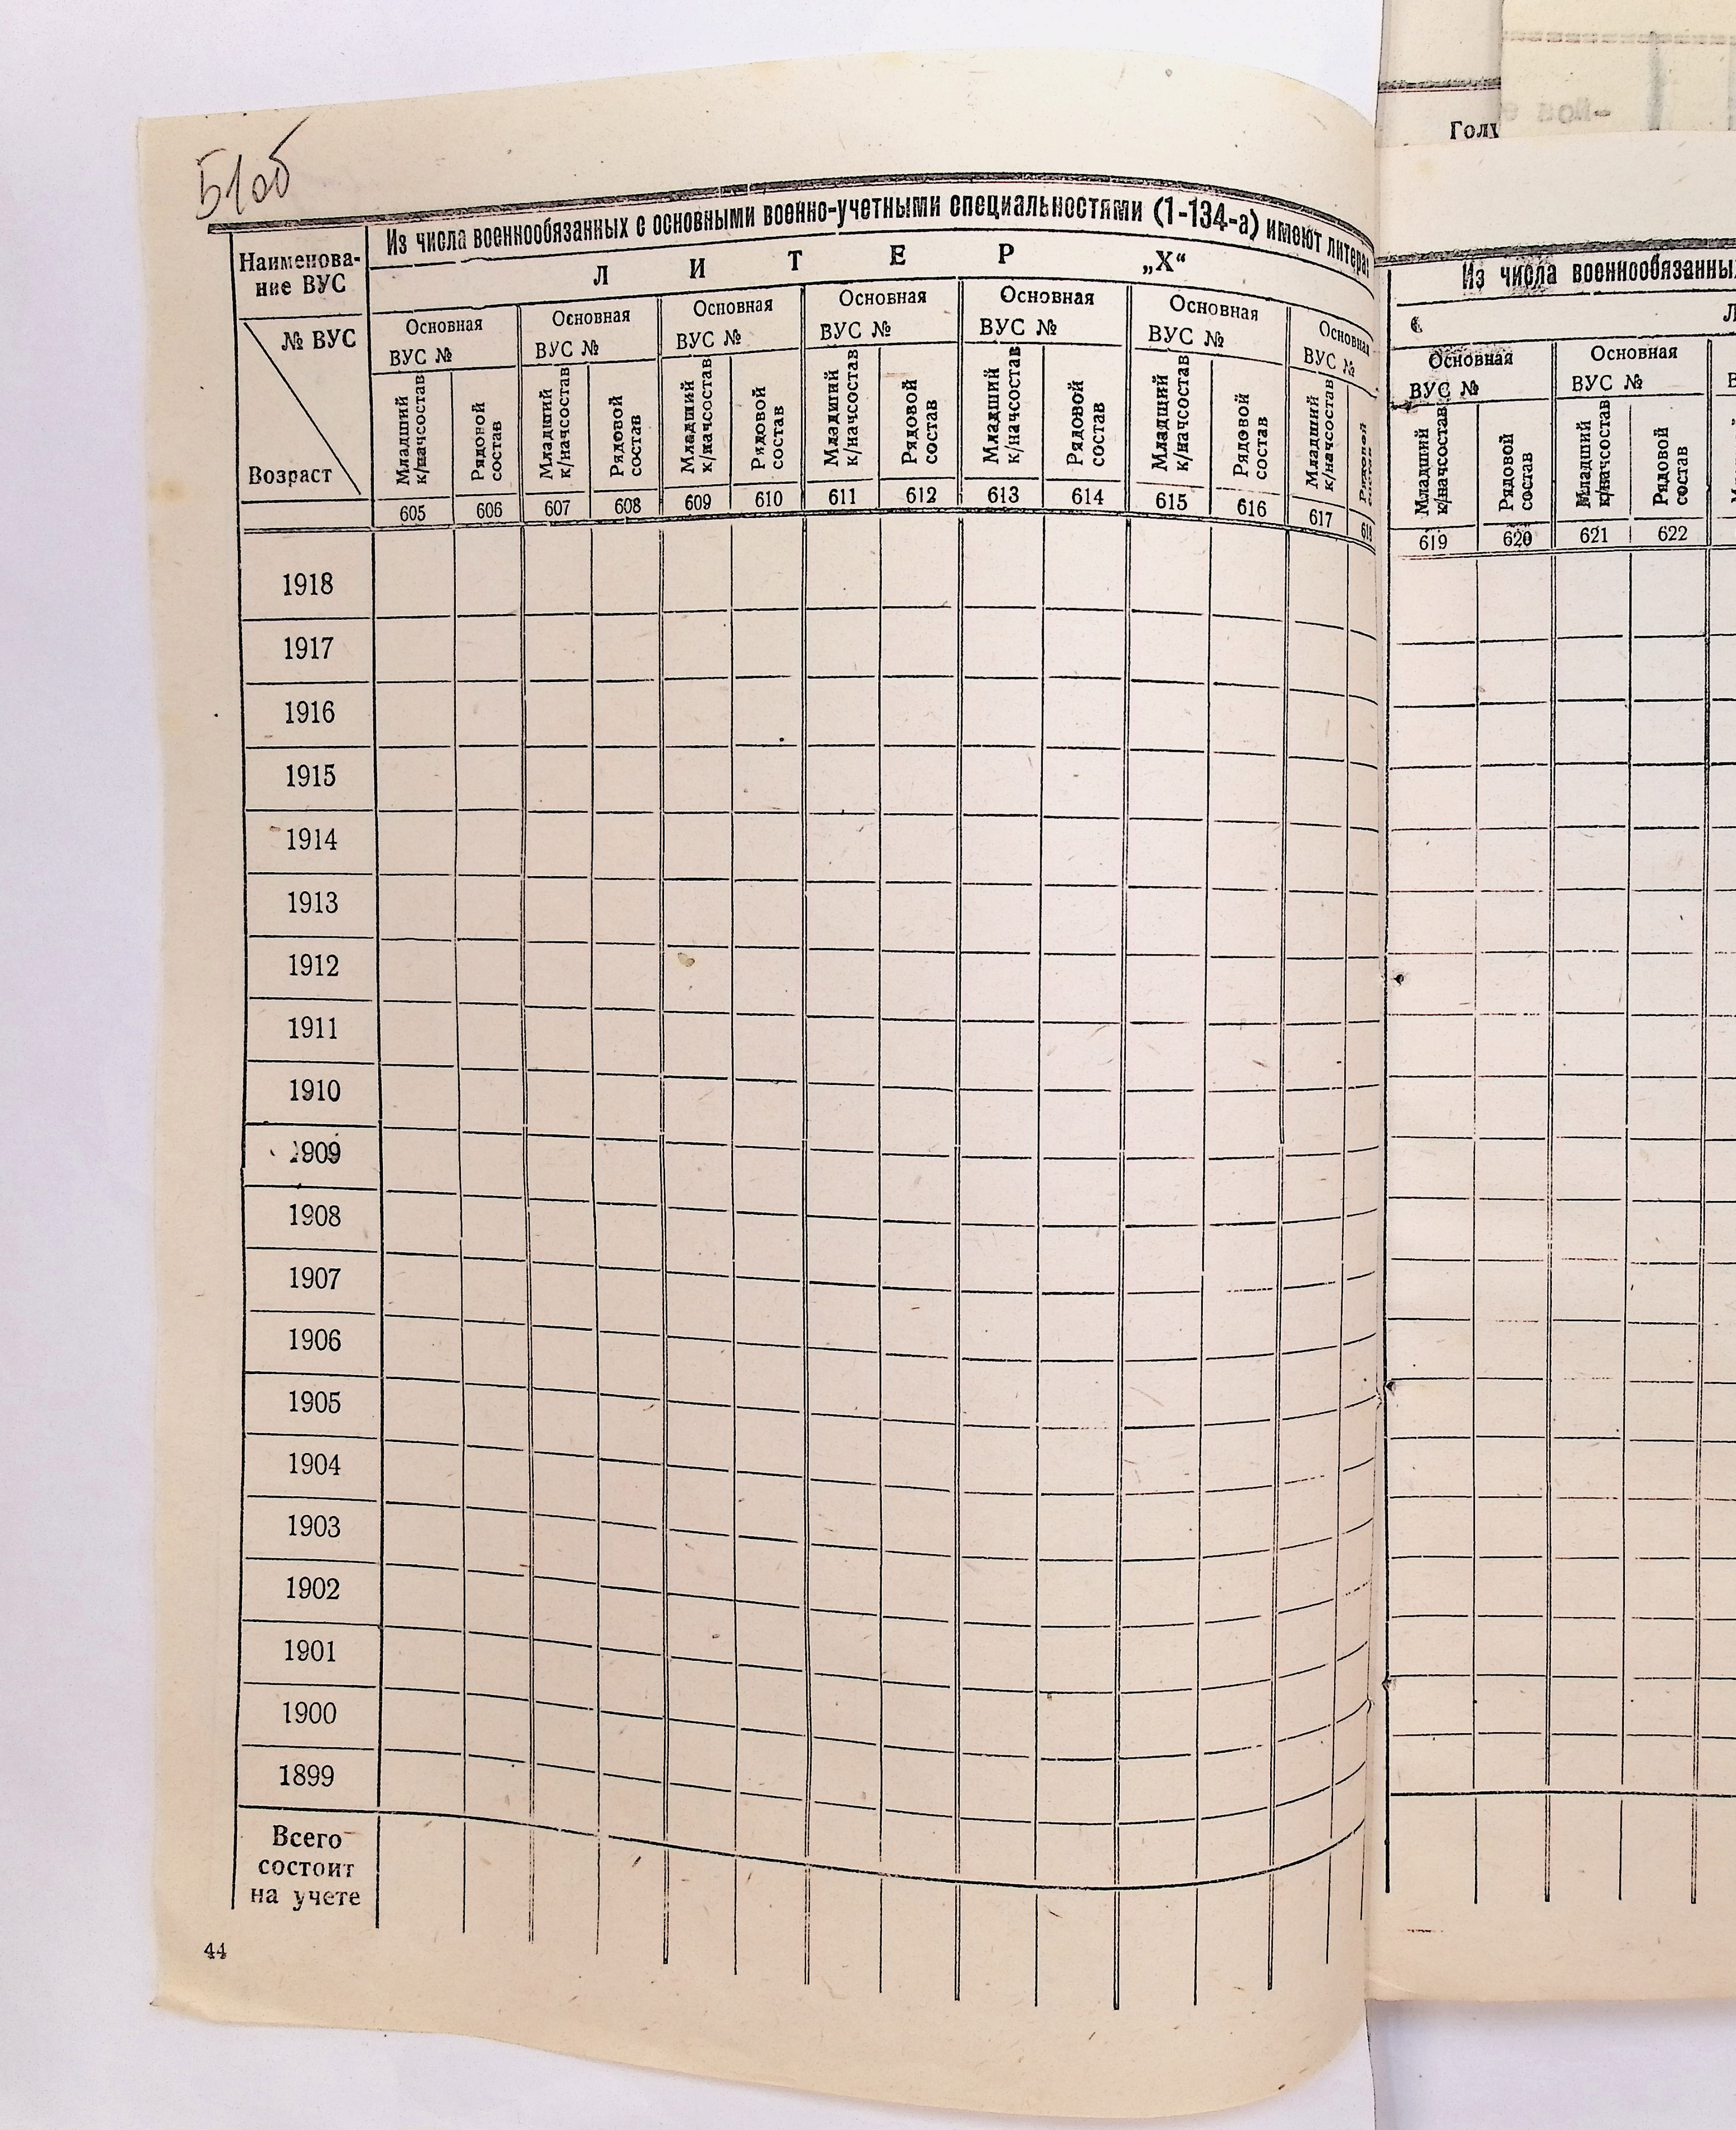 51об
Из числа военнообязанных с основными военно-учетными специальностями (1-134-а) имеют литера:
Л И Т Е Р „Х“
Наименова-
ние ВУС
№ ВУС
Возраст
Основная
ВУС №
Основная
ВУС №
Основная
ВУС №
Основная
ВУС №
Основная
ВУС №
Основная
ВУС №
Основная
ВУС №
Младший
к/начсостав
Рядовой
состав
Младший
к/начсостав
Рядовой
состав
Младший
к/начсостав
Рядовой
состав
Младший
к/начсостав
Рядовой
состав
Младший
к/начсостав
Рядовой
состав
Младший
к/начсостав
Рядовой
состав
Младший
к/начсостав
Рядовой
состав
605 606 607 608 609 610 611 612 613 614 615 616 617 618
1918
1917
1916
1915
1914
1913
1912
1911
1910
1909
1908
1907
1906
1905
1904
1903
1902
1901
1900
1899
Всего
состоит
на учете
44
Голу
Из числа военнообязанны
Л
Основная
ВУС №
Основная
ВУС №
Младший
к/начсостав
Рядовой
состав
Младший
к/начсостав
Рядовой
состав
619 620 621 622